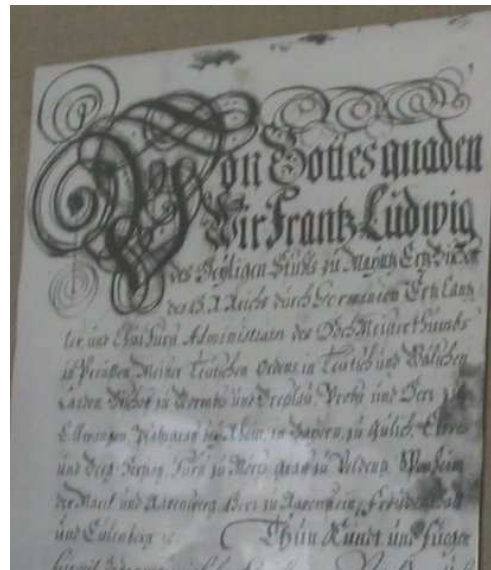 Von Gottes gnaden
Wir Frantz Lüdwig
des Heyligen Stühls zü Mayntz Ertz Bischoff
des H. R. Reichs dürch Germanien Ertz Cantz
ler ünd Chür Fürst Administrator des HochMeisterthümbs
in Preüssen Meister Teütschen Ordens in Teütsch ünd Wälschen
Landen Bischof zü Wormbs ünd Breslaü, Probst ünd Herr zü
Ellwangen, Pfaltzgraf bey Rhein, in Bayern, zü Gülich, Cleve
ünd Berg Hertzog, Fürst zü Moers, Graf zü Veldentz, Sponheim
der Marck ünd Ravensperg, Herr zü Ravenstein, Freüdenthal
ünd Eülenberg Thün Kündt ünd fügen
hiermit